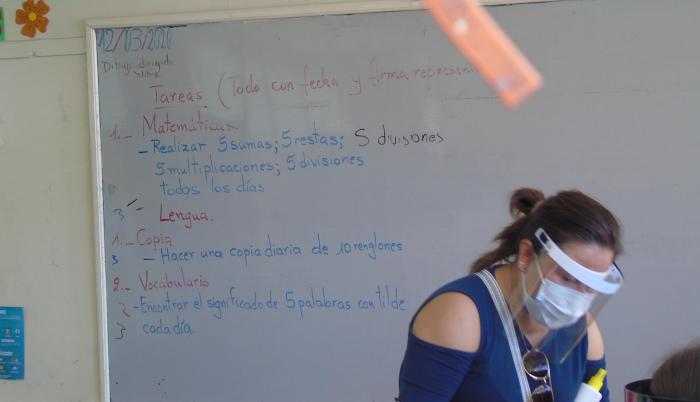 12/03/2020
Dibujo dirigido
Tareas. (Todo con fecha y firma represen
1.- Matemáticas
- Realizar 5 sumas; 5 restas; 5 divisiones
5 multiplicaciones; 5 divisiones
todos los días
3 - Lengua.
1.- Copia
3 - Hacer una copia diaria de 10 renglones
2.- Vocabulario
2 - Encontrar el significado de 5 palabras con tilde
3 cada día.